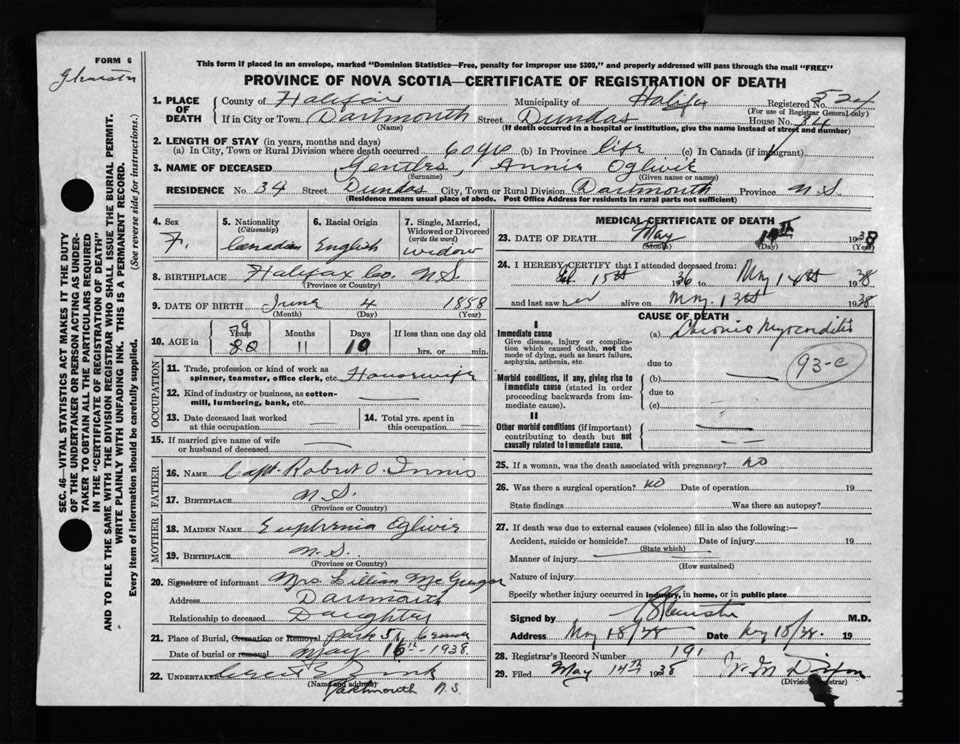 FORM 6
This form if placed in an envelope, marked "Dominion Statistics—Free, penalty for improper use $300," and properly addressed will pass through the mail "FREE"
PROVINCE OF NOVA SCOTIA—CERTIFICATE OF REGISTRATION OF DEATH
SEC. 46—VITAL STATISTICS ACT MAKES IT THE DUTY
OF THE UNDERTAKER OR PERSON ACTING AS UNDER-
TAKER TO OBTAIN ALL THE PARTICULARS REQUIRED
IN THE "CERTIFICATE OF REGISTRATION OF DEATH"
AND TO FILE THE SAME WITH THE DIVISION REGISTRAR WHO SHALL ISSUE THE BURIAL PERMIT.
WRITE PLAINLY WITH UNFADING INK. THIS IS A PERMANENT RECORD.
Every item of information should be carefully supplied. (See reverse side for instructions.)
1. PLACE OF DEATH County of Halifax Municipality of Halifx Registered No. 524
(For use of Registrar General only)
If in City or Town Dartmouth Street Dundas House No. 34
(Name) (If death occurred in a hospital or institution, give the name instead of street and number)
2. LENGTH OF STAY (in years, months and days)
(a) In City, Town or Rural Division where death occurred 60 yrs (b) In Province life (c) In Canada (if immigrant)
3. NAME OF DECEASED Gentles, Annie Oglivie
(Surname) (Given name or names)
RESIDENCE No. 34 Street Dundas City, Town or Rural Division Dartmouth Province N.S.
(Residence means usual place of abode. Post Office Address for residents in rural parts not sufficient)
4. Sex F.
5. Nationality (Citizenship) Canadian
6. Racial Origin English
7. Single, Married, Widowed or Divorced (write the word) widow
8. BIRTHPLACE Halifax Co. N.S.
(Province or Country)
9. DATE OF BIRTH June 4 1858
(Month) (Day) (Year)
10. AGE in Years 79 80 Months 11 Days 10 If less than one day old hrs. or min.
OCCUPATION
11. Trade, profession or kind of work as spinner, teamster, office clerk, etc. Housewife
12. Kind of industry or business, as cotton-mill, lumbering, bank, etc.
13. Date deceased last worked at this occupation
14. Total yrs. spent in this occupation
15. If married give name of wife or husband of deceased
FATHER
16. NAME Capt. Robert O. Innis
17. BIRTHPLACE N.S.
(Province or Country)
MOTHER
18. MAIDEN NAME Euphenia Oglivie
19. BIRTHPLACE N.S.
(Province or Country)
20. Signature of informant Mrs. Lillian McGregor
Address Dartmouth
Relationship to deceased Daughter
21. Place of Burial, Cremation or Removal Park St.
Date of burial or removal May 16th - 1938
22. UNDERTAKER
(Name and address)
Dartmouth N.S.
MEDICAL CERTIFICATE OF DEATH
23. DATE OF DEATH May 14th 1938
(Month) (Day)
24. I HEREBY CERTIFY that I attended deceased from: 15th 1936 to May 14th 1938
and last saw her alive on May. 13th 1938
CAUSE OF DEATH
I
Immediate cause
Give disease, injury or complication which caused death, not the mode of dying, such as heart failure, asphyxia, asthenia, etc.
(a) Chronic Myocarditis
due to
93-c
Morbid conditions, if any, giving rise to immediate cause (stated in order proceeding backwards from immediate cause).
(b)
due to
(c)
II
Other morbid conditions (if important) contributing to death but not causally related to immediate cause.
25. If a woman, was the death associated with pregnancy? no
26. Was there a surgical operation? no Date of operation 19
State findings Was there an autopsy?
27. If death was due to external causes (violence) fill in also the following:—
Accident, suicide or homicide? Date of injury 19
(State which)
Manner of injury
(How sustained)
Nature of injury
Specify whether injury occurred in industry, in home, or in public place
Signed by M.D.
Address May 18/38 Date May 18/38. 19
28. Registrar's Record Number 191
29. Filed May 14th 1938
(Division Registrar)